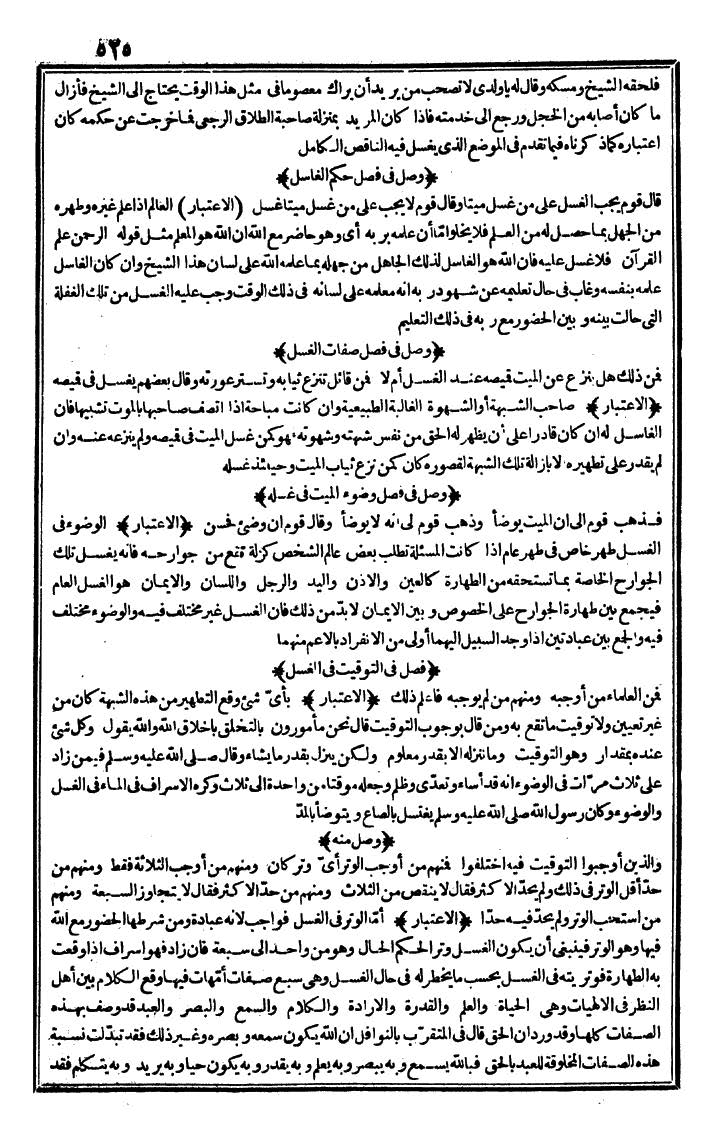 ٥٢٥
فلحقه الشيخ ومسكه وقال له ياولدى لا تصحب من يريد أن يراك معصوما فى مثل هذا الوقت يحتاج الى الشيخ فأزال
ما كان أصابه من الخجل ورجع الى خدمته فاذا كان المريد بمنزلة صاحبة الطلاق الرجعى فاخرجت عن حكمه كان
اعتباره كماذكرناه فيما تقدم فى الموضع الذى يغسل فيه الناقص الكامل
﴿وصل فى فصل حكم الغاسل﴾
قال قوم يجب الغسل على من غسل ميتا وقال قوم لا يجب على من غسل ميتا غسل (الاعتبار) العالم اذا علم غيره وطهره
من الجهل بما حصل له من العلم فلا يخلو امّا أن علمه بربه أى وهو حاضر مع الله ان الله هو المعلم مثل قوله الرحمن علم
القرآن فلا غسل عليه فان الله هو الغاسل لذلك الجاهل من جهله بما علمه الله على لسان هذا الشيخ وان كان الغاسل
علمه بنفسه وغاب فى حال تعليمه عن شهود ربه انه معلمه على لسانه فى ذلك الوقت وجب عليه الغسل من تلك الغفلة
التى حالت بينه وبين الحضور مع ربه فى ذلك التعليم
﴿وصل فى فصل صفات الغسل﴾
فمن ذلك هل ينزع عن الميت قميصه عند الغسل أم لا فمن قائل تنزع ثيابه وتستر عورته وقال بعضهم يغسل فى قميصه
﴿الاعتبار﴾ صاحب الشبهة أو الشهوة الغالبة الطبيعية وان كانت مباحة اذا اتصف صاحبها بالموت تشبيها فان
الغاسل له ان كان قادرا على أن يظهر له الحق من نفس شبهته وشهوته فهو كمن غسل الميت فى قميصه ولم ينزعه عنه وان
لم يقدر على تطهيره الا بازالة تلك الشبهة لقصوره كان كمن نزع ثياب الميت وحينئذ غسله
﴿وصل فى فصل وضوء الميت فى غسله﴾
فذهب قوم الى ان الميت يوضأ وذهب قوم الى انه لا يوضأ وقال قوم ان وضئ فحسن ﴿الاعتبار﴾ الوضوء فى
الغسل طهر خاص فى طهر عام اذا كانت المسئلة تطلب بعض عالم الشخص كزلة تقع من جوارحه فانه يغسل تلك
الجوارح الخاصة بما تستحقه من الطهارة كالعين والاذن واليد والرجل واللسان والايمان هو الغسل العام
فيجمع بين طهارة الجوارح على الخصوص وبين الايمان لا بدّ من ذلك فان الغسل غير مختلف فيه والوضوء مختلف
فيه والجمع بين عبادتين اذا وجد السبيل اليهما أولى من الانفراد بالاعم منهما
﴿فصل فى التوقيت فى الغسل﴾
فمن العلماء من أوجبه ومنهم من لم يوجبه فاعلم ذلك ﴿الاعتبار﴾ بأىّ شئ وقع التطهير من هذه الشبهة كان من
غير تعيين ولا توقيت ما تقع به ومن قال بوجوب التوقيت قال نحن مأمورون بالتخلق باخلاق الله والله يقول وكل شئ
عنده بمقدار وهو التوقيت وما ننزله الا بقدر معلوم ولكن ينزل بقدر ما يشاء وقال صلى الله عليه وسلم فيمن زاد
على ثلاث مرّات فى الوضوء انه قد أساء وتعدّى وظلم وجعله موقتا من واحدة الى ثلاث وكره الاسراف فى الماء فى الغسل
والوضوء وكان رسول الله صلى الله عليه وسلم يغتسل بالصاع ويتوضأ بالمدّ
﴿وصل منه﴾
والذين أوجبوا التوقيت فيه اختلفوا فمنهم من أوجب الوتر أىّ وتر كان ومنهم من أوجب الثلاثة فقط ومنهم من
حدّ أقل الوتر فى ذلك ولم يحدّ الاكثر فقال لا ينقص من الثلاث ومنهم من حدّ الاكثر فقال لا يتجاوز السبعة ومنهم
من استحب الوتر ولم يحدّ فيه حدّا ﴿الاعتبار﴾ أمّا الوتر فى الغسل فواجب لانه عبادة ومن شرطها الحضور مع الله
فيها وهو الوتر فينبغى أن يكون الغسل وترا لحكم الحال وهو من واحد الى سبعة فان زاد فهو اسراف اذا وقعت
به الطهارة فوتريته فى الغسل بحسب ما يخطر له فى حال الغسل وهى سبع صفات أمّهات فيها وقع الكلام بين أهل
النظر فى الالهيات وهى الحياة والعلم والقدرة والارادة والكلام والسمع والبصر والعبد قد وصف بهذه
الصفات كلها وقد ورد ان الحق قال فى المتقرّب بالنوافل ان الله يكون سمعه وبصره وغير ذلك فقد تبدّلت نسبة
هذه الصفات المخلوقة للعبد بالحق فبالله يسمع وبه يبصر وبه يعلم وبه يقدر وبه يكون حيا وبه يريد وبه يتكلم فقد